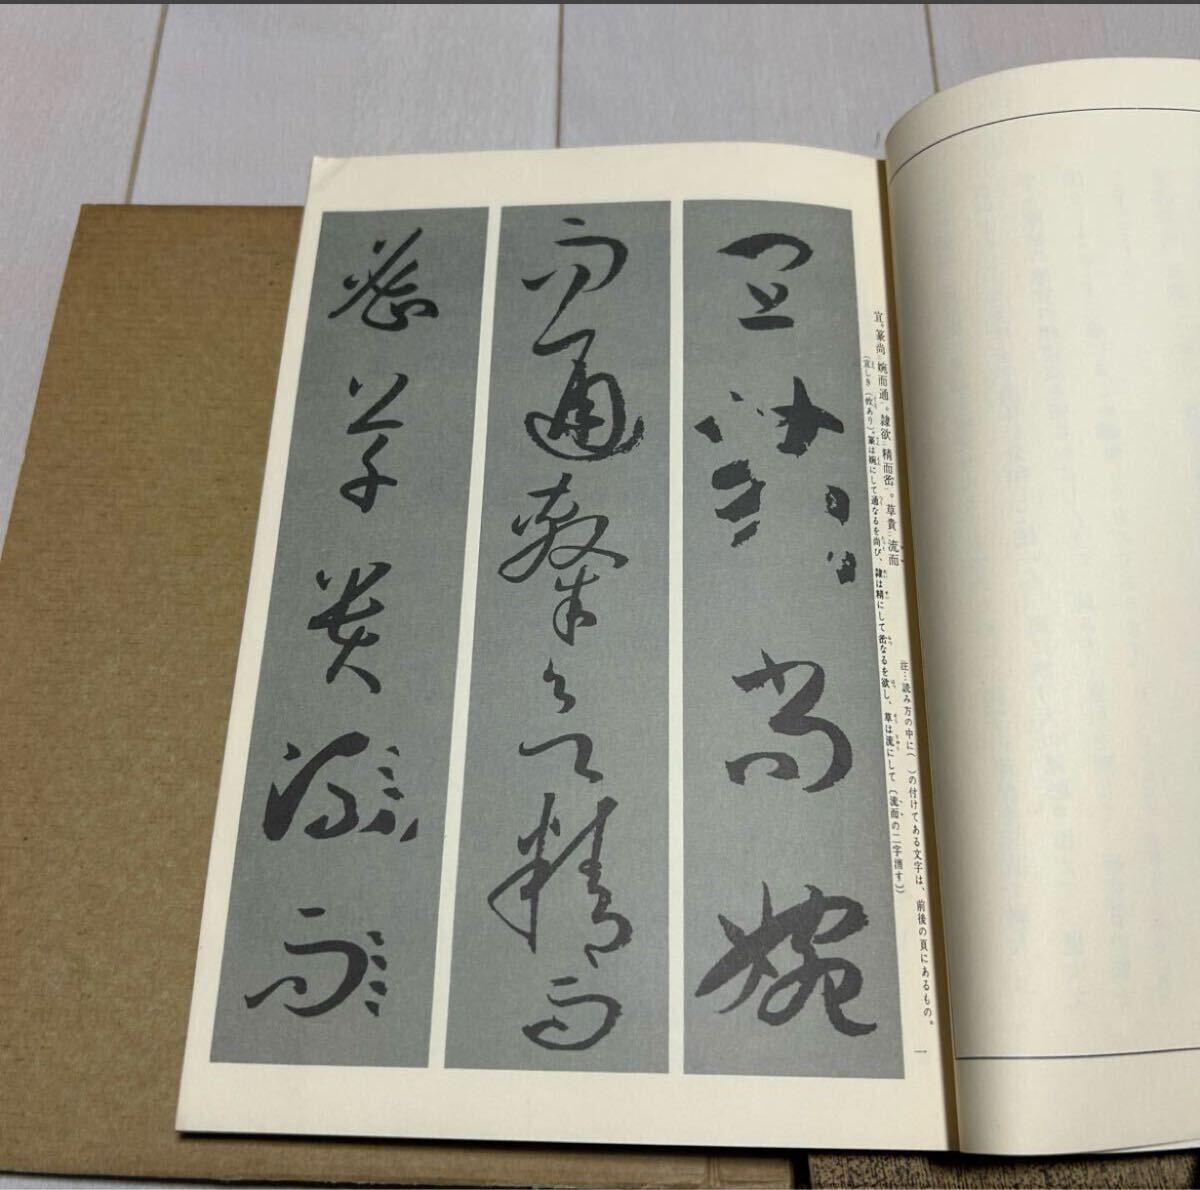 宜篆尚婉
而通隷欲精而
密草貴流而
宜。篆尚婉而通。隷欲精而密。草貴流而
(宜しき(攸あり)。篆は婉にして通なるを尚び、隷は精にして密なるを欲し、草は流にして〔流而の二字消す〕)
注…読み方の中に( )の付けてある文字は、前後の頁にあるもの。
一